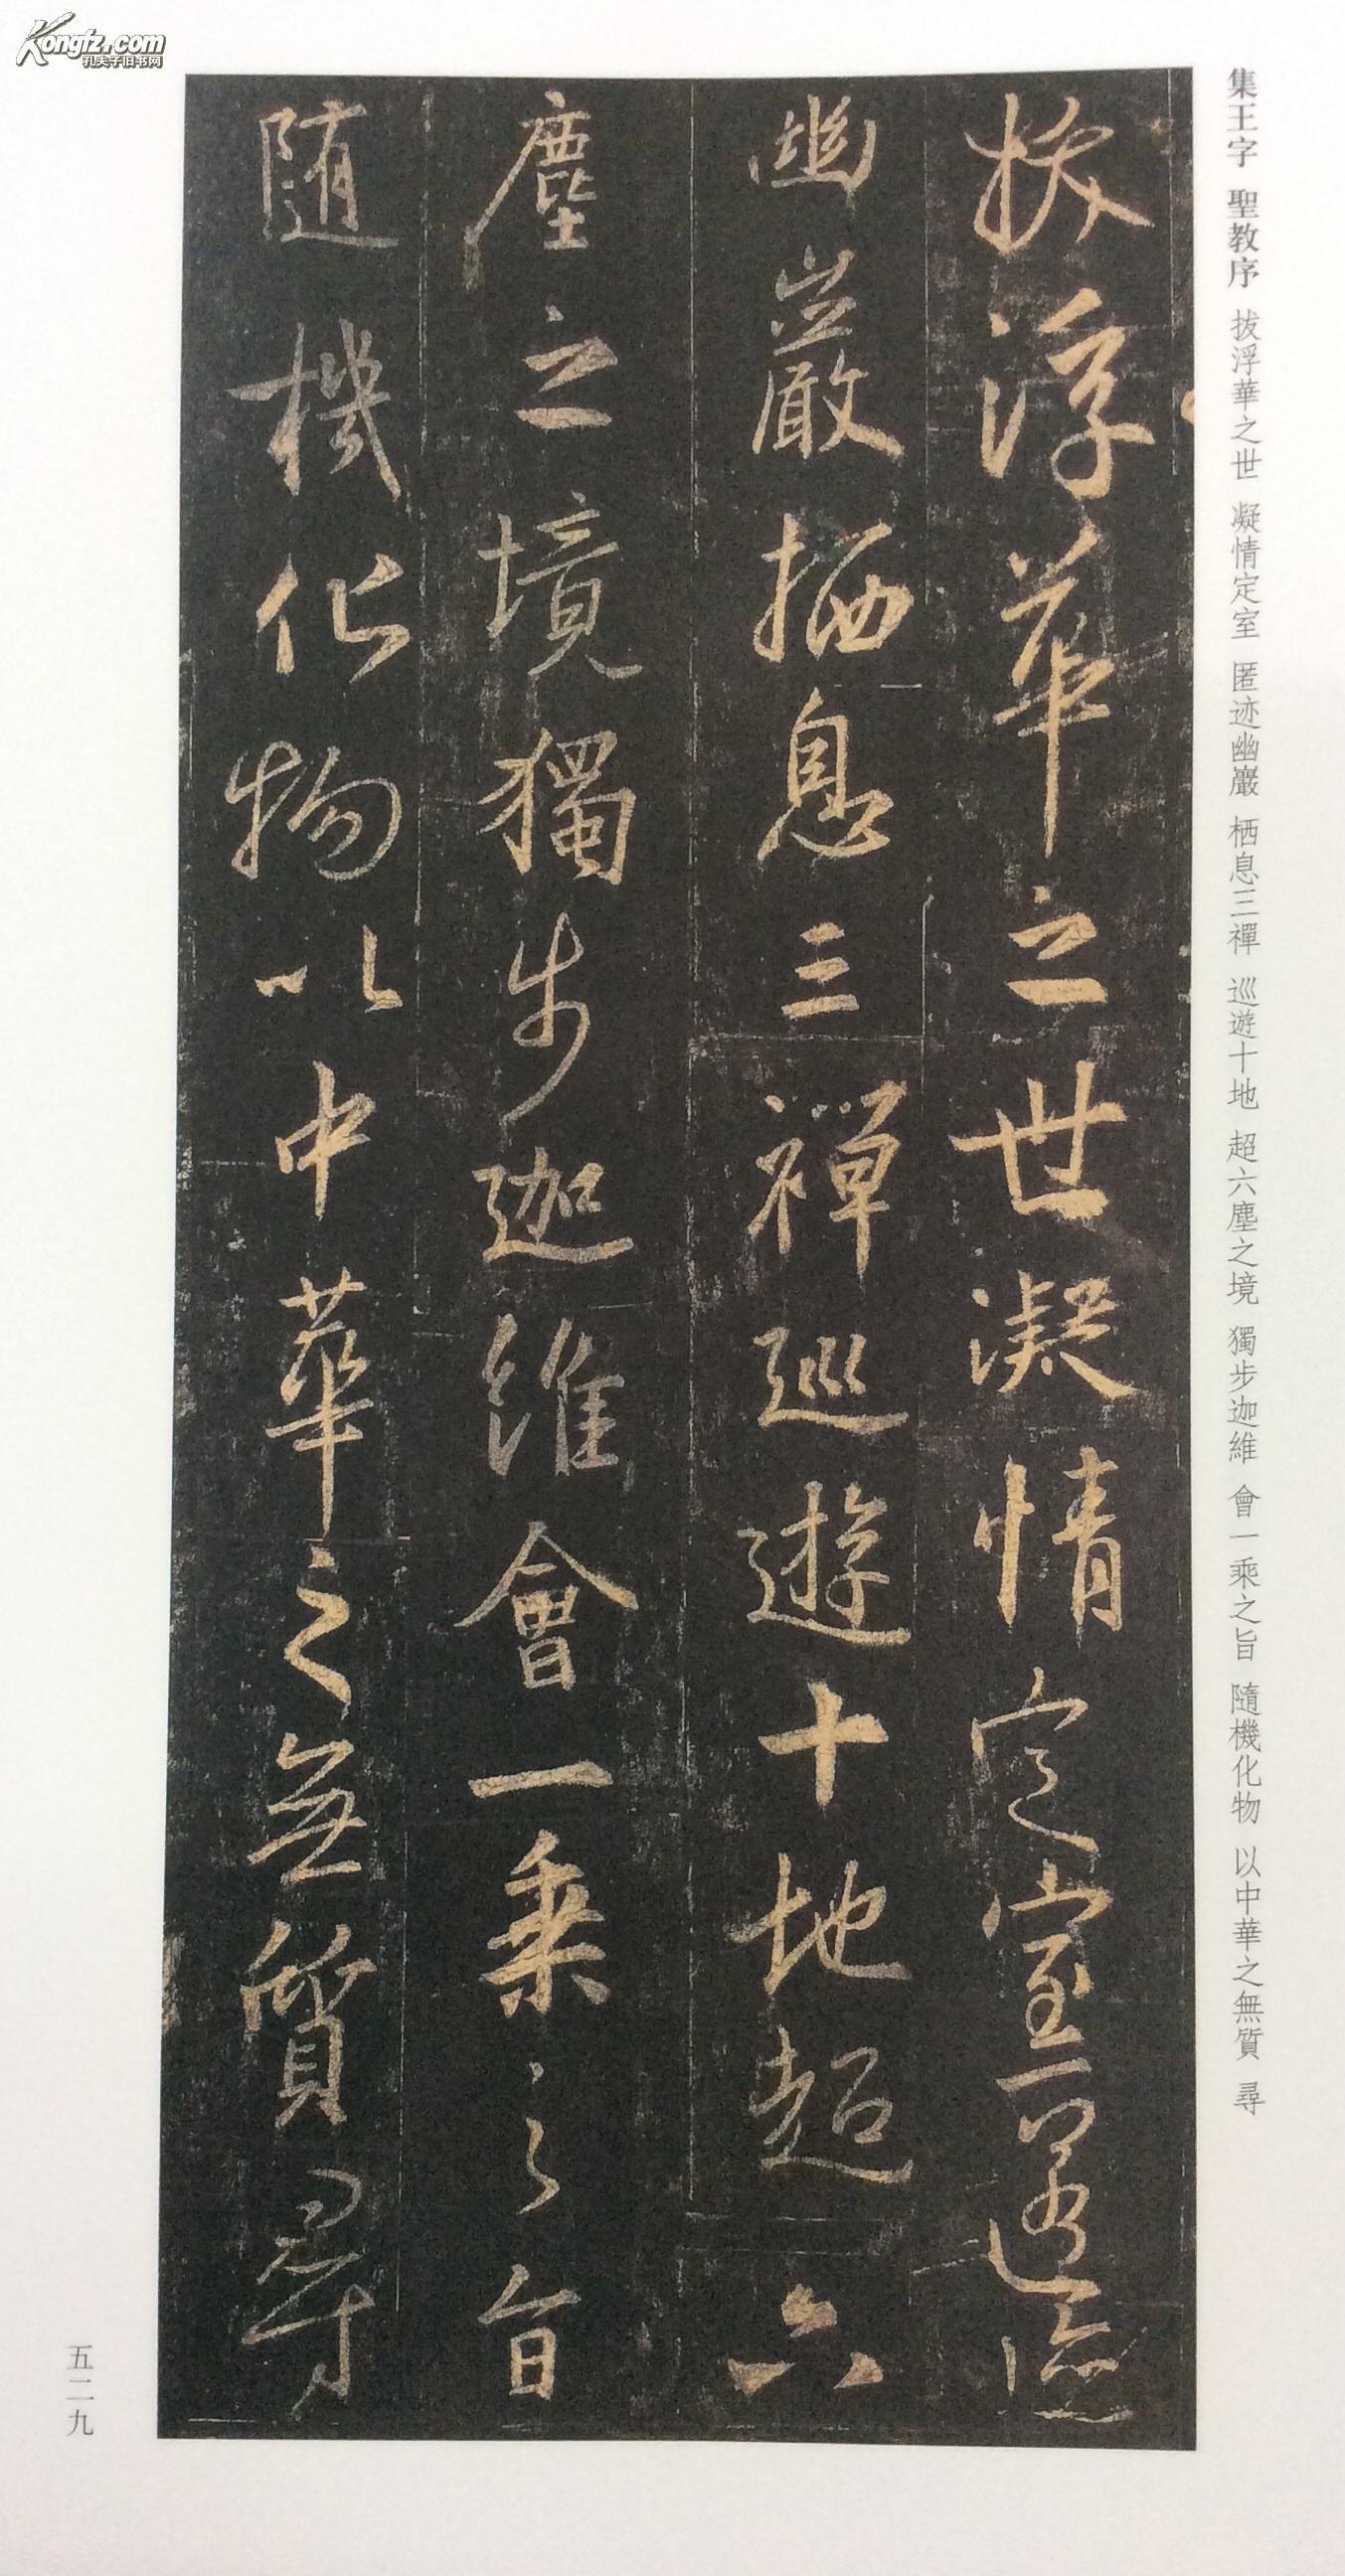 Kongfz.com
孔夫子旧书网
集王字 聖教序 拔浮華之世 凝情定室 匿迹幽巖 栖息三禪 巡遊十地 超六塵之境 獨步迦維 會一乘之旨 隨機化物 以中華之無質 尋
拔浮華之世凝情定室匿迹
幽巖栖息三禪巡遊十地超六
塵之境獨步迦維會一乘之旨
隨機化物以中華之無質尋
五二九